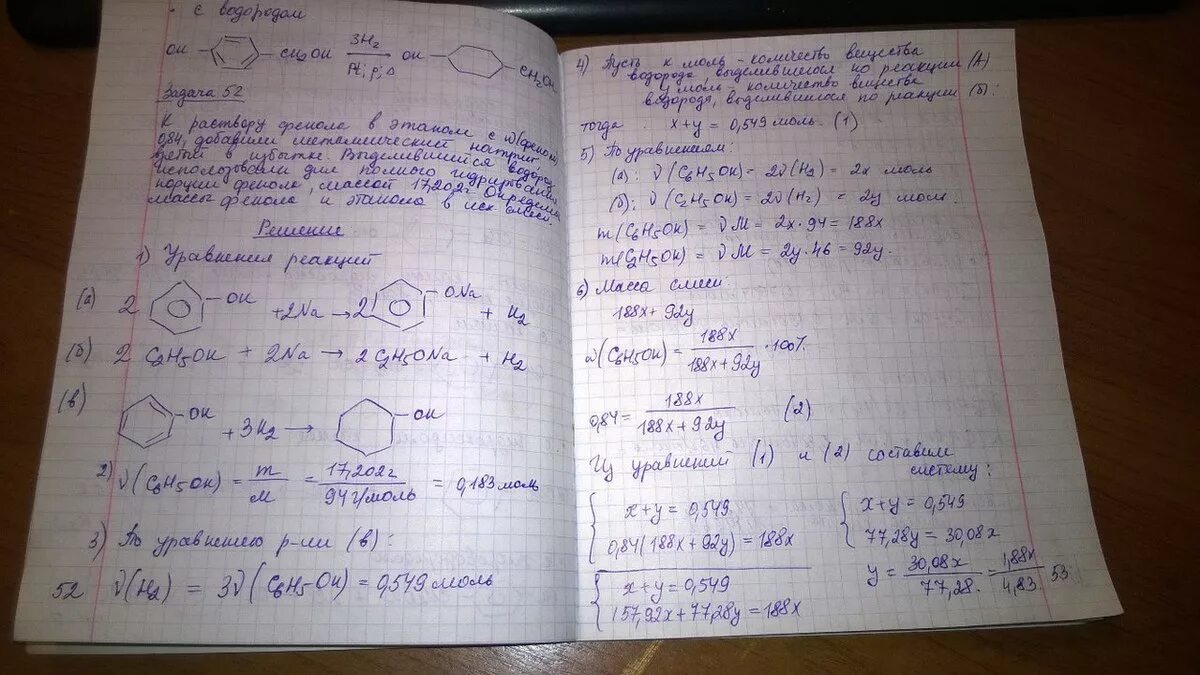 с водородом
OH CH2OH 3H2 Pt; p; Δ OH CH2OH
Задача 52
К раствору фенола в этаноле с ω(фенола)
0,84, добавили металлический натрий
взятый в избытке. Выделившийся водород
использовали для полного гидрирования
порции фенола, массой 17,202г. Определите
массы фенола и этанола в исх. смеси.
Решение
1) Уравнения реакций
(а) 2 OH + 2Na → 2 ONa + H2
(б) 2 C2H5OH + 2Na → 2 C2H5ONa + H2
(в) OH + 3H2 → OH
2) ν(C6H5OH) = m/M = 17,202г/94г/моль = 0,183 моль
3) По уравнению р-ии (в):
ν(H2) = 3ν(C6H5-OH) = 0,549 моль
52
4) Пусть x моль - количество вещества
водорода, выделившегося по реакции (А)
y моль - количество вещества
водорода, выделившегося по реакции (б):
тогда x+y = 0,549 моль. (1)
5) По уравнениям:
(а): ν(C6H5OH) = 2ν(H2) = 2x моль
(б): ν(C2H5OH) = 2ν(H2) = 2y моль.
m(C6H5OH) = νM = 2x·94 = 188x
m(C2H5OH) = νM = 2y·46 = 92y.
6) Масса смеси:
188x + 92y
ω(C6H5OH) = 188x/188x+92y ·100%
0,84 = 188x/188x+92y (2)
Из уравнений (1) и (2) составим
систему:
{ x+y = 0,549
0,84(188x+92y) = 188x
{ x+y = 0,549
157,92x+77,28y = 188x
{ x+y = 0,549
77,28y = 30,08x
y = 30,08x/77,28 = 1,88x/4,83
53